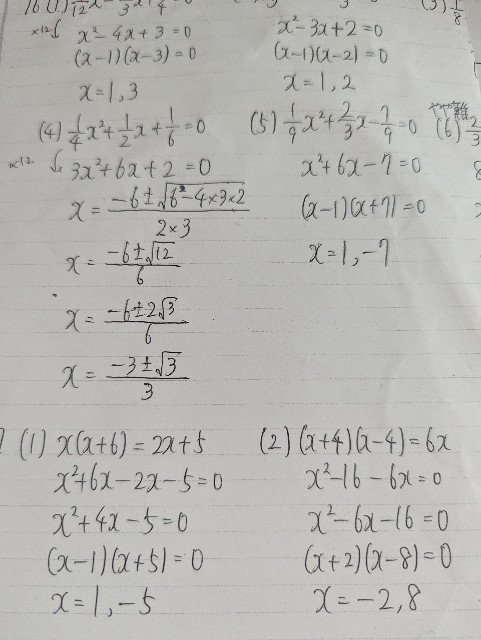 16 (1) 1/12 x
(3) 1/8
×12 x²-4x+3=0
(x-1)(x-3)=0
x=1,3
x²-3x+2=0
(x-1)(x-2)=0
x=1,2
(4) 1/4 x²+1/2 x+1/6=0
×12 3x²+6x+2=0
x=(-6±√(6²-4×3×2))/(2×3)
x=(-6±√12)/6
x=(-6±2√3)/6
x=(-3±√3)/3
(5) 1/9 x²+2/3 x-7/9=0
x²+6x-7=0
(x-1)(x+7)=0
x=1,-7
やや難
(6) 2/3
8
(1) x(x+6)=2x+5
x²+6x-2x-5=0
x²+4x-5=0
(x-1)(x+5)=0
x=1,-5
(2) (x+4)(x-4)=6x
x²-16-6x=0
x²-6x-16=0
(x+2)(x-8)=0
x=-2,8